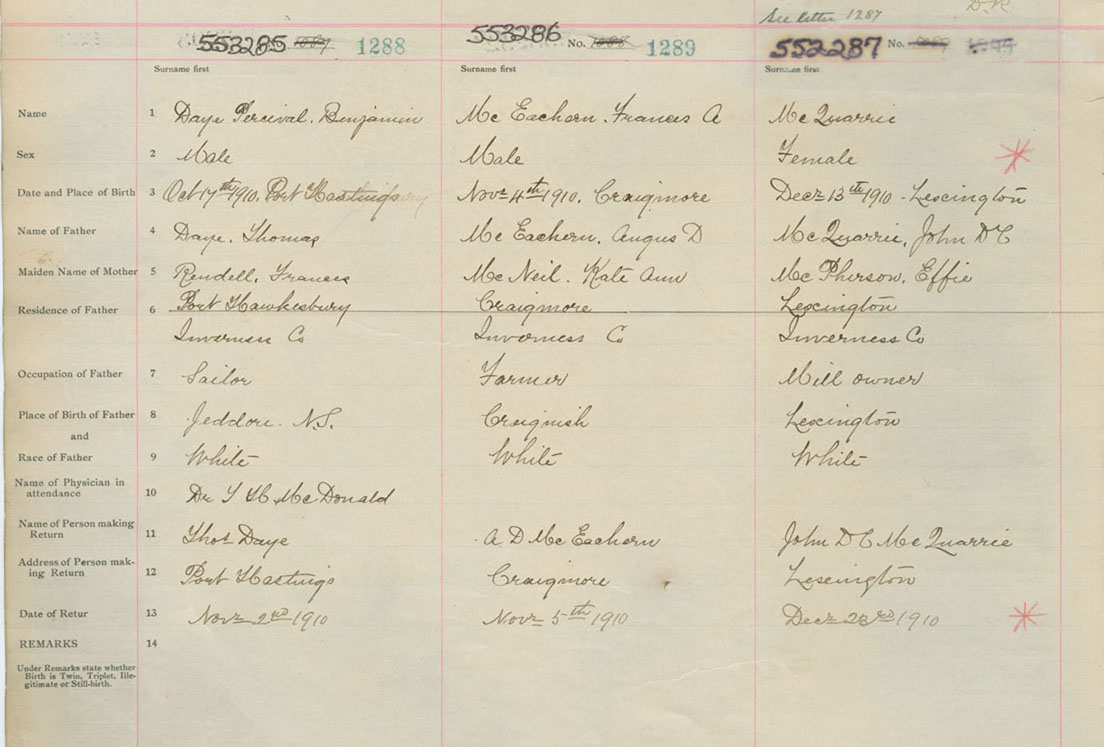 See letter 1287
D.R.
553285 1288 553286 No. 1289 553287 No.
Surname first Surname first Surname first
Name 1 Daye Percival. Benjamin Mc Eachern. Frances A Mc Quarrie
Sex 2 Male Male Female
Date and Place of Birth 3 Oct 17th 1910. Port Hastings Novr 4th 1910. Craigmore Decr 13th 1910 - Lexington
Name of Father 4 Daye. Thomas Mc Eachern. Angus D Mc Quarrie, John D C
Maiden Name of Mother 5 Rendell, Frances Mc Neil. Kate Ann Mc Pherson, Effie
Residence of Father 6 Port Hawkesbury Craigmore Lexington
Inverness Co Inverness Co Inverness Co
Occupation of Father 7 Sailor Farmer Mill owner
Place of Birth of Father 8 Jeddore. N.S. Creignish Lexington
and
Race of Father 9 White White White
Name of Physician in
attendance 10 Dr Mc Donald
Name of Person making
Return 11 Thos Daye A D Mc Eachern John D C Mc Quarrie
Address of Person mak-
ing Return 12 Port Hastings Craigmore Lexington
Date of Retur 13 Novr 2nd 1910 Novr 5th 1910 Decr 23rd 1910
REMARKS 14
Under Remarks state whether
Birth is Twin, Triplet, Ille-
gitimate or Still-birth.